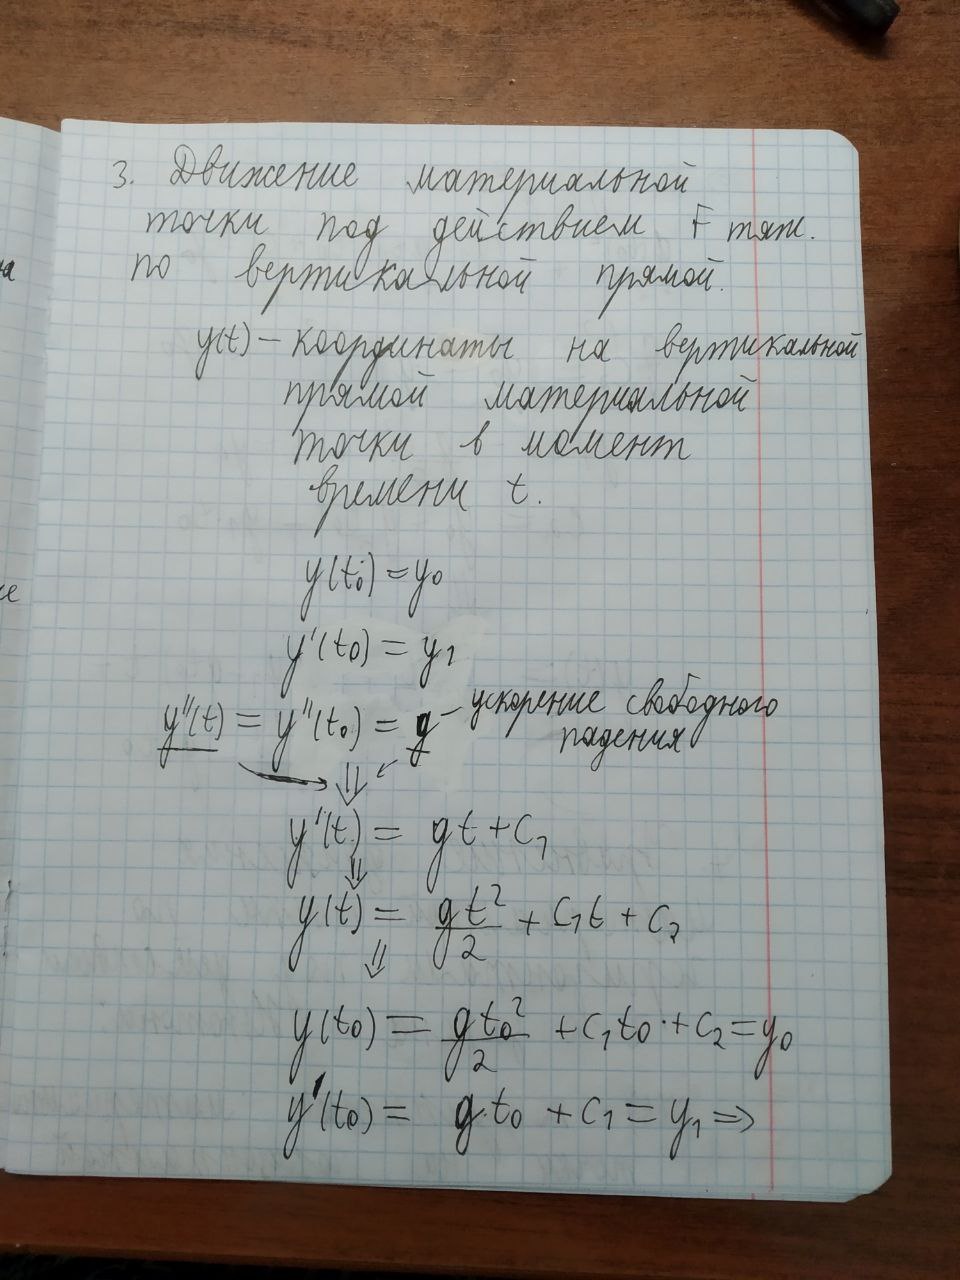 3. Движение материальной
точки под действием F тяж.
по вертикальной прямой.
y(t) – координаты на вертикальной
прямой материальной
точки в момент
времени t.
y(t₀) = y₀
y'(t₀) = y₁
y''(t) = y''(t₀) = g – ускорение свободного
падения
⇓
y'(t) = gt + C₁
⇓
y(t) = gt²/2 + C₁t + C₂
⇓
y(t₀) = gt₀²/2 + C₁t₀ + C₂ = y₀
y'(t₀) = g·t₀ + C₁ = y₁ ⇒